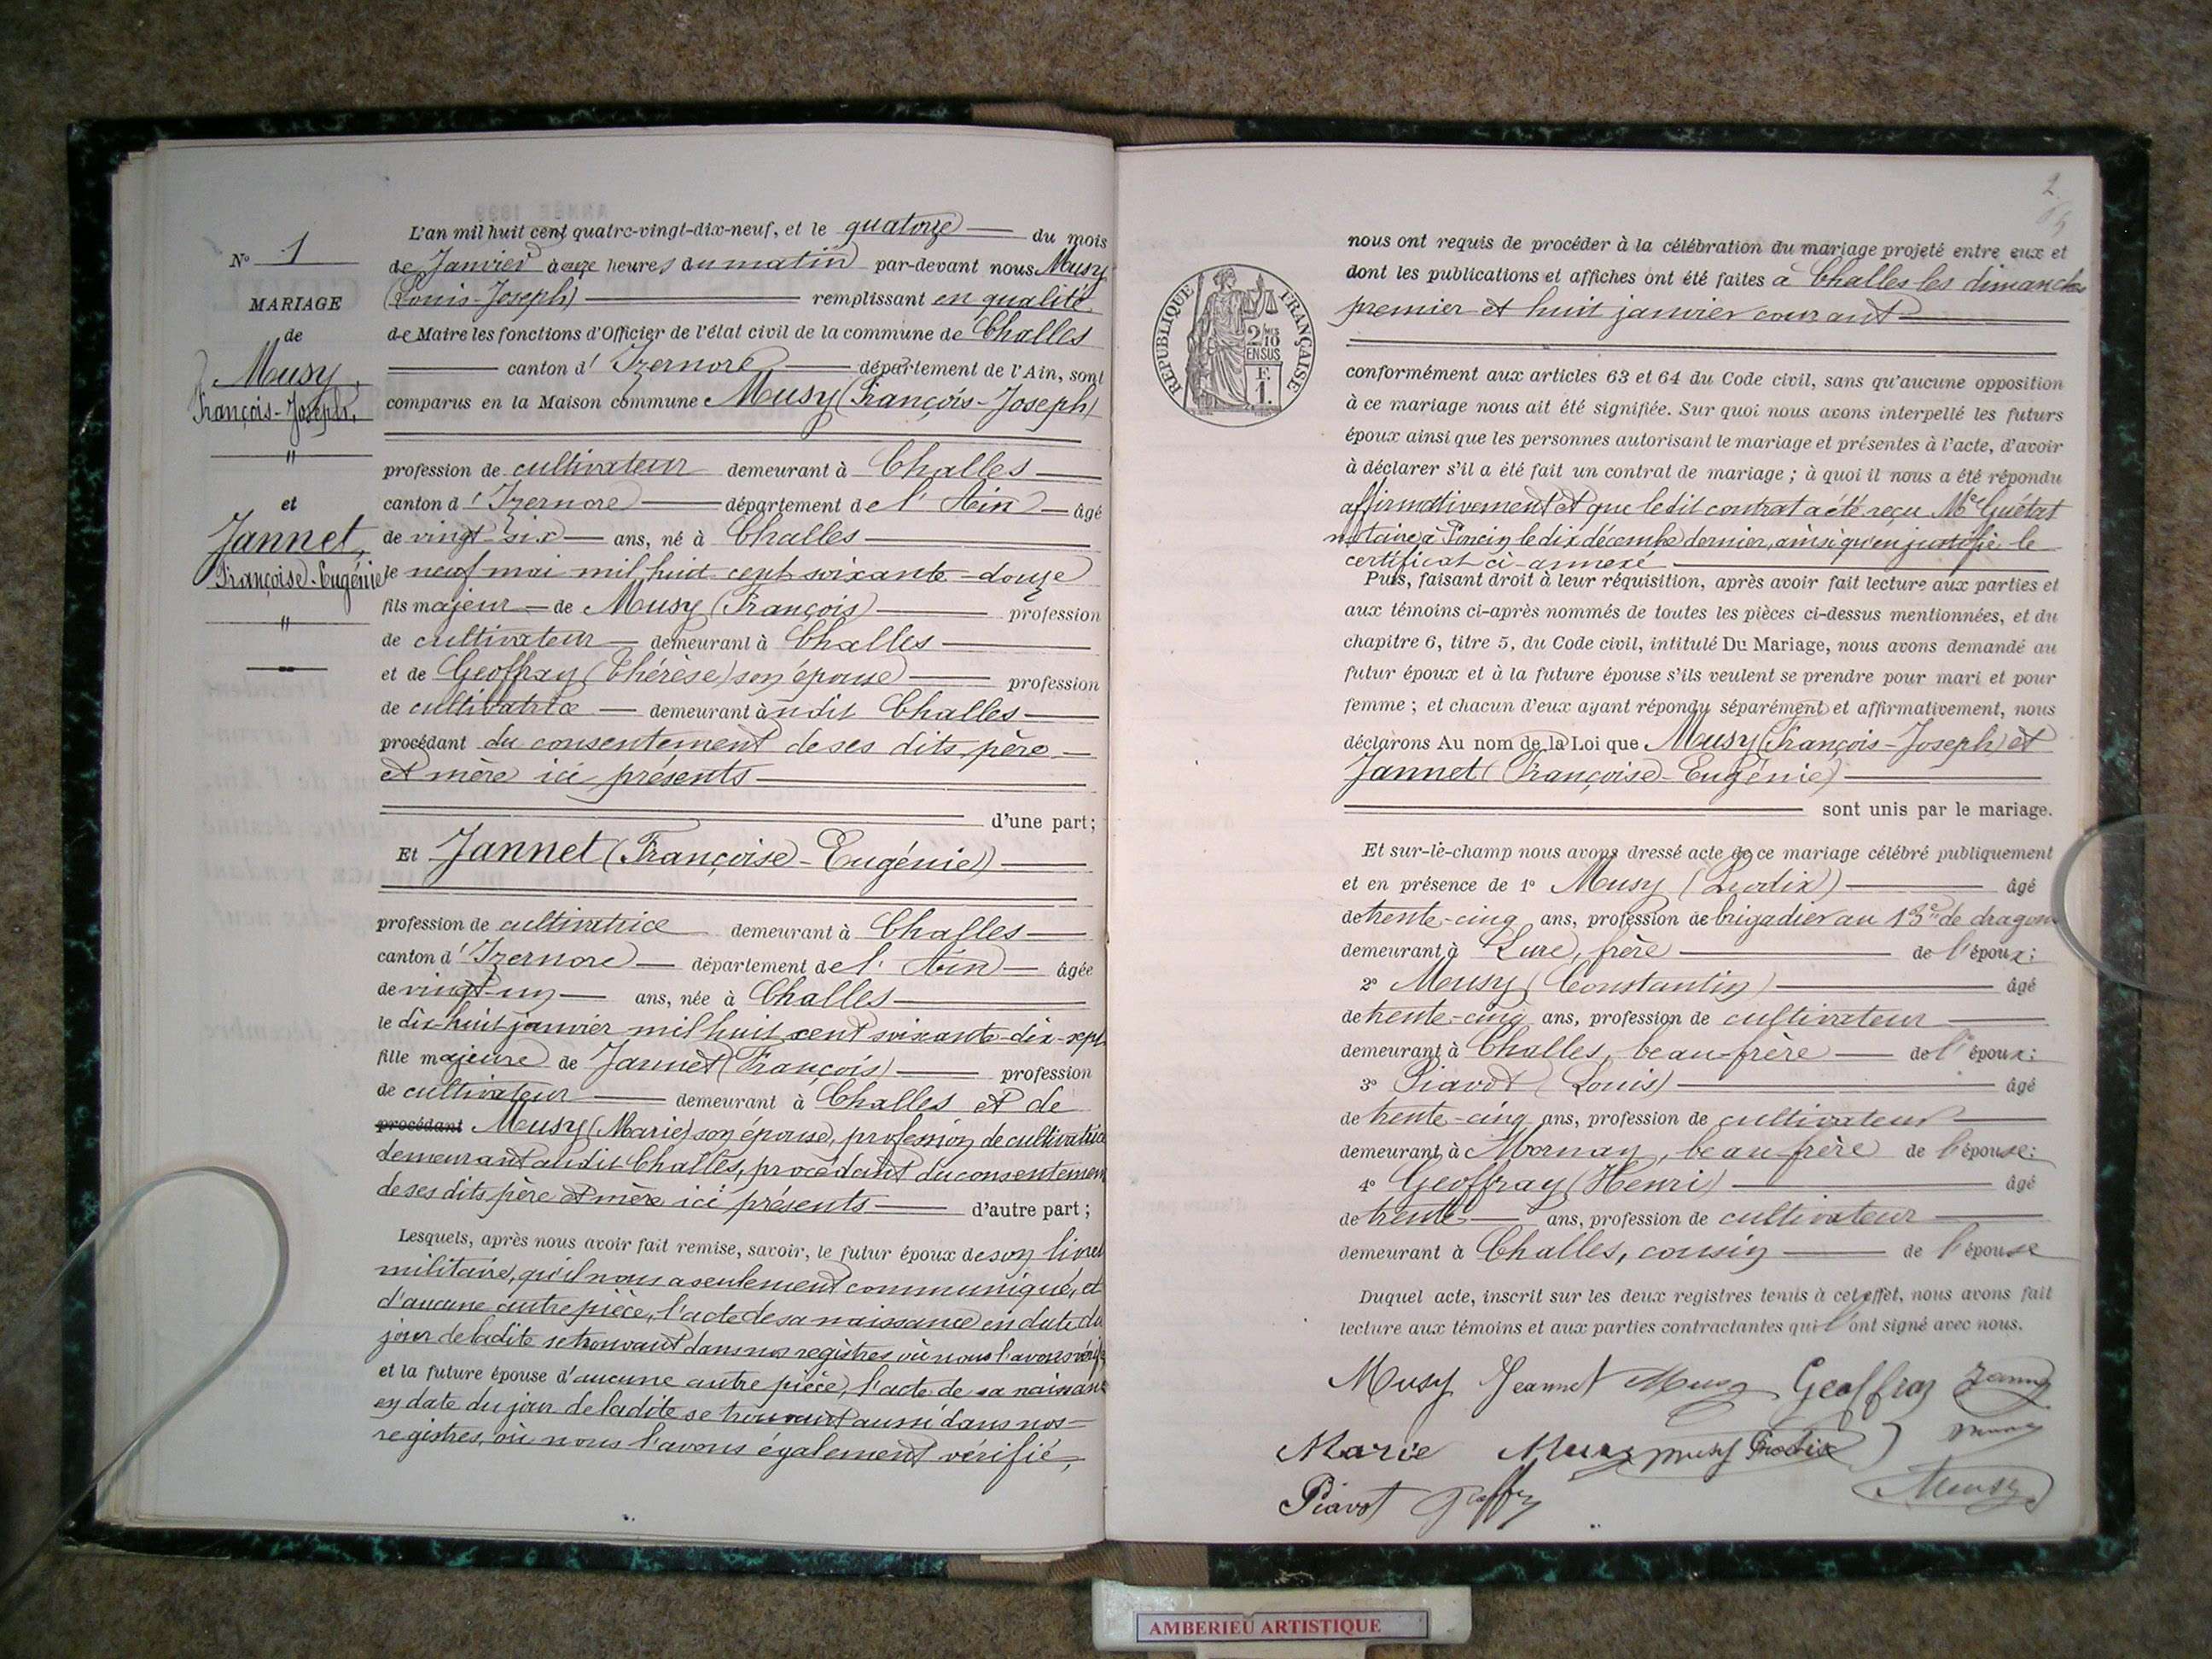 N° 1
MARIAGE
de
Musy,
François-Joseph,
"
et
Jannet,
Françoise-Eugénie
"
L'an mil huit cent quatre-vingt-dix-neuf, et le quatorze du mois
de Janvier à onze heures du matin par-devant nous Musy
(Louis-Joseph) remplissant en qualité
de Maire les fonctions d'Officier de l'état civil de la commune de Challes
canton d'Izernore département de l'Ain, sont
comparus en la Maison commune Musy (François-Joseph)
profession de cultivateur demeurant à Challes
canton d'Izernore département de l'Ain âgé
de vingt-six ans, né à Challes
le neuf mai mil huit cent soixante-douze
fils majeur de Musy (François) profession
de cultivateur demeurant à Challes
et de Geoffray (Thérèse) son épouse profession
de cultivatrice demeurant audit Challes
procédant du consentement de ses dits père
et mère ici présents
d'une part;
Et Jannet (Françoise-Eugénie)
profession de cultivatrice demeurant à Challes
canton d'Izernore département de l'Ain âgée
de vingt-un ans, née à Challes
le dix-huit janvier mil huit cent soixante-dix-sept
fille majeure de Jannet (François) profession
de cultivateur demeurant à Challes et de
procédant Musy (Marie) son épouse, profession de cultivatrice
demeurant audit Challes, procédant du consentement
de ses dits père et mère ici présents d'autre part;
Lesquels, après nous avoir fait remise, savoir, le futur époux de son livret
militaire, qu'il nous a seulement communiqué, et
d'aucune autre pièce, l'acte de sa naissance en date du
jour de ladite se trouvant dans nos registres où nous l'avons vérifié
et la future épouse d'aucune autre pièce, l'acte de sa naissance
en date du jour de ladite se trouvant aussi dans nos
registres, où nous l'avons également vérifié,
2
RÉPUBLIQUE FRANÇAISE
2/10
EN SUS
1 F.
nous ont requis de procéder à la célébration du mariage projeté entre eux et
dont les publications et affiches ont été faites à Challes les dimanches
premier et huit janvier courant
conformément aux articles 63 et 64 du Code civil, sans qu'aucune opposition
à ce mariage nous ait été signifiée. Sur quoi nous avons interpellé les futurs
époux ainsi que les personnes autorisant le mariage et présentes à l'acte, d'avoir
à déclarer s'il a été fait un contrat de mariage ; à quoi il nous a été répondu
affirmativement et que ledit contrat a été reçu Me Guétat
notaire à Poncin le dix décembre dernier, ainsi qu'en justifie le
certificat ci-annexé
Puis, faisant droit à leur réquisition, après avoir fait lecture aux parties et
aux témoins ci-après nommés de toutes les pièces ci-dessus mentionnées, et du
chapitre 6, titre 5, du Code civil, intitulé Du Mariage, nous avons demandé au
futur époux et à la future épouse s'ils veulent se prendre pour mari et pour
femme ; et chacun d'eux ayant répondu séparément et affirmativement, nous
déclarons Au nom de la Loi que Musy (François-Joseph) et
Jannet (Françoise-Eugénie)
sont unis par le mariage.
Et sur-le-champ nous avons dressé acte de ce mariage célébré publiquement
et en présence de 1° Musy âgé
de trente-cinq ans, profession de brigadier au de dragons
demeurant à Lure, frère de l'époux;
2° Musy (Constantin) âgé
de trente-cinq ans, profession de cultivateur
demeurant à Challes, beau-frère de l'époux;
3° Piavot (Louis) âgé
de trente-cinq ans, profession de cultivateur
demeurant à Mornay, beau-frère de l'épouse;
4° Geoffray (Henri) âgé
de trente ans, profession de cultivateur
demeurant à Challes, cousin de l'épouse
Duquel acte, inscrit sur les deux registres tenus à cet effet, nous avons fait
lecture aux témoins et aux parties contractantes qui l'ont signé avec nous.
Musy Jeannet Musy Geoffray
Marie Musy Musy
Piavot Musy
AMBERIEU ARTISTIQUE